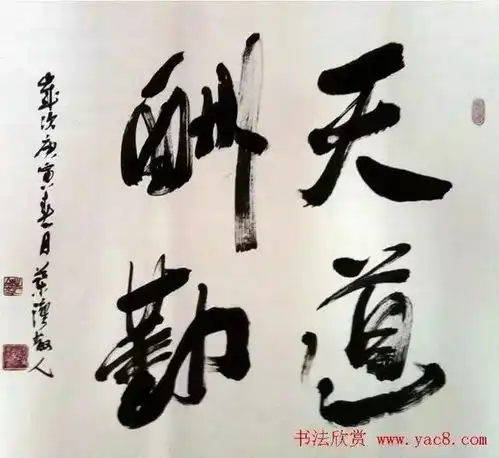 天道
酬勤
岁次庚寅春日
散人
书法欣赏 www.yac8.com